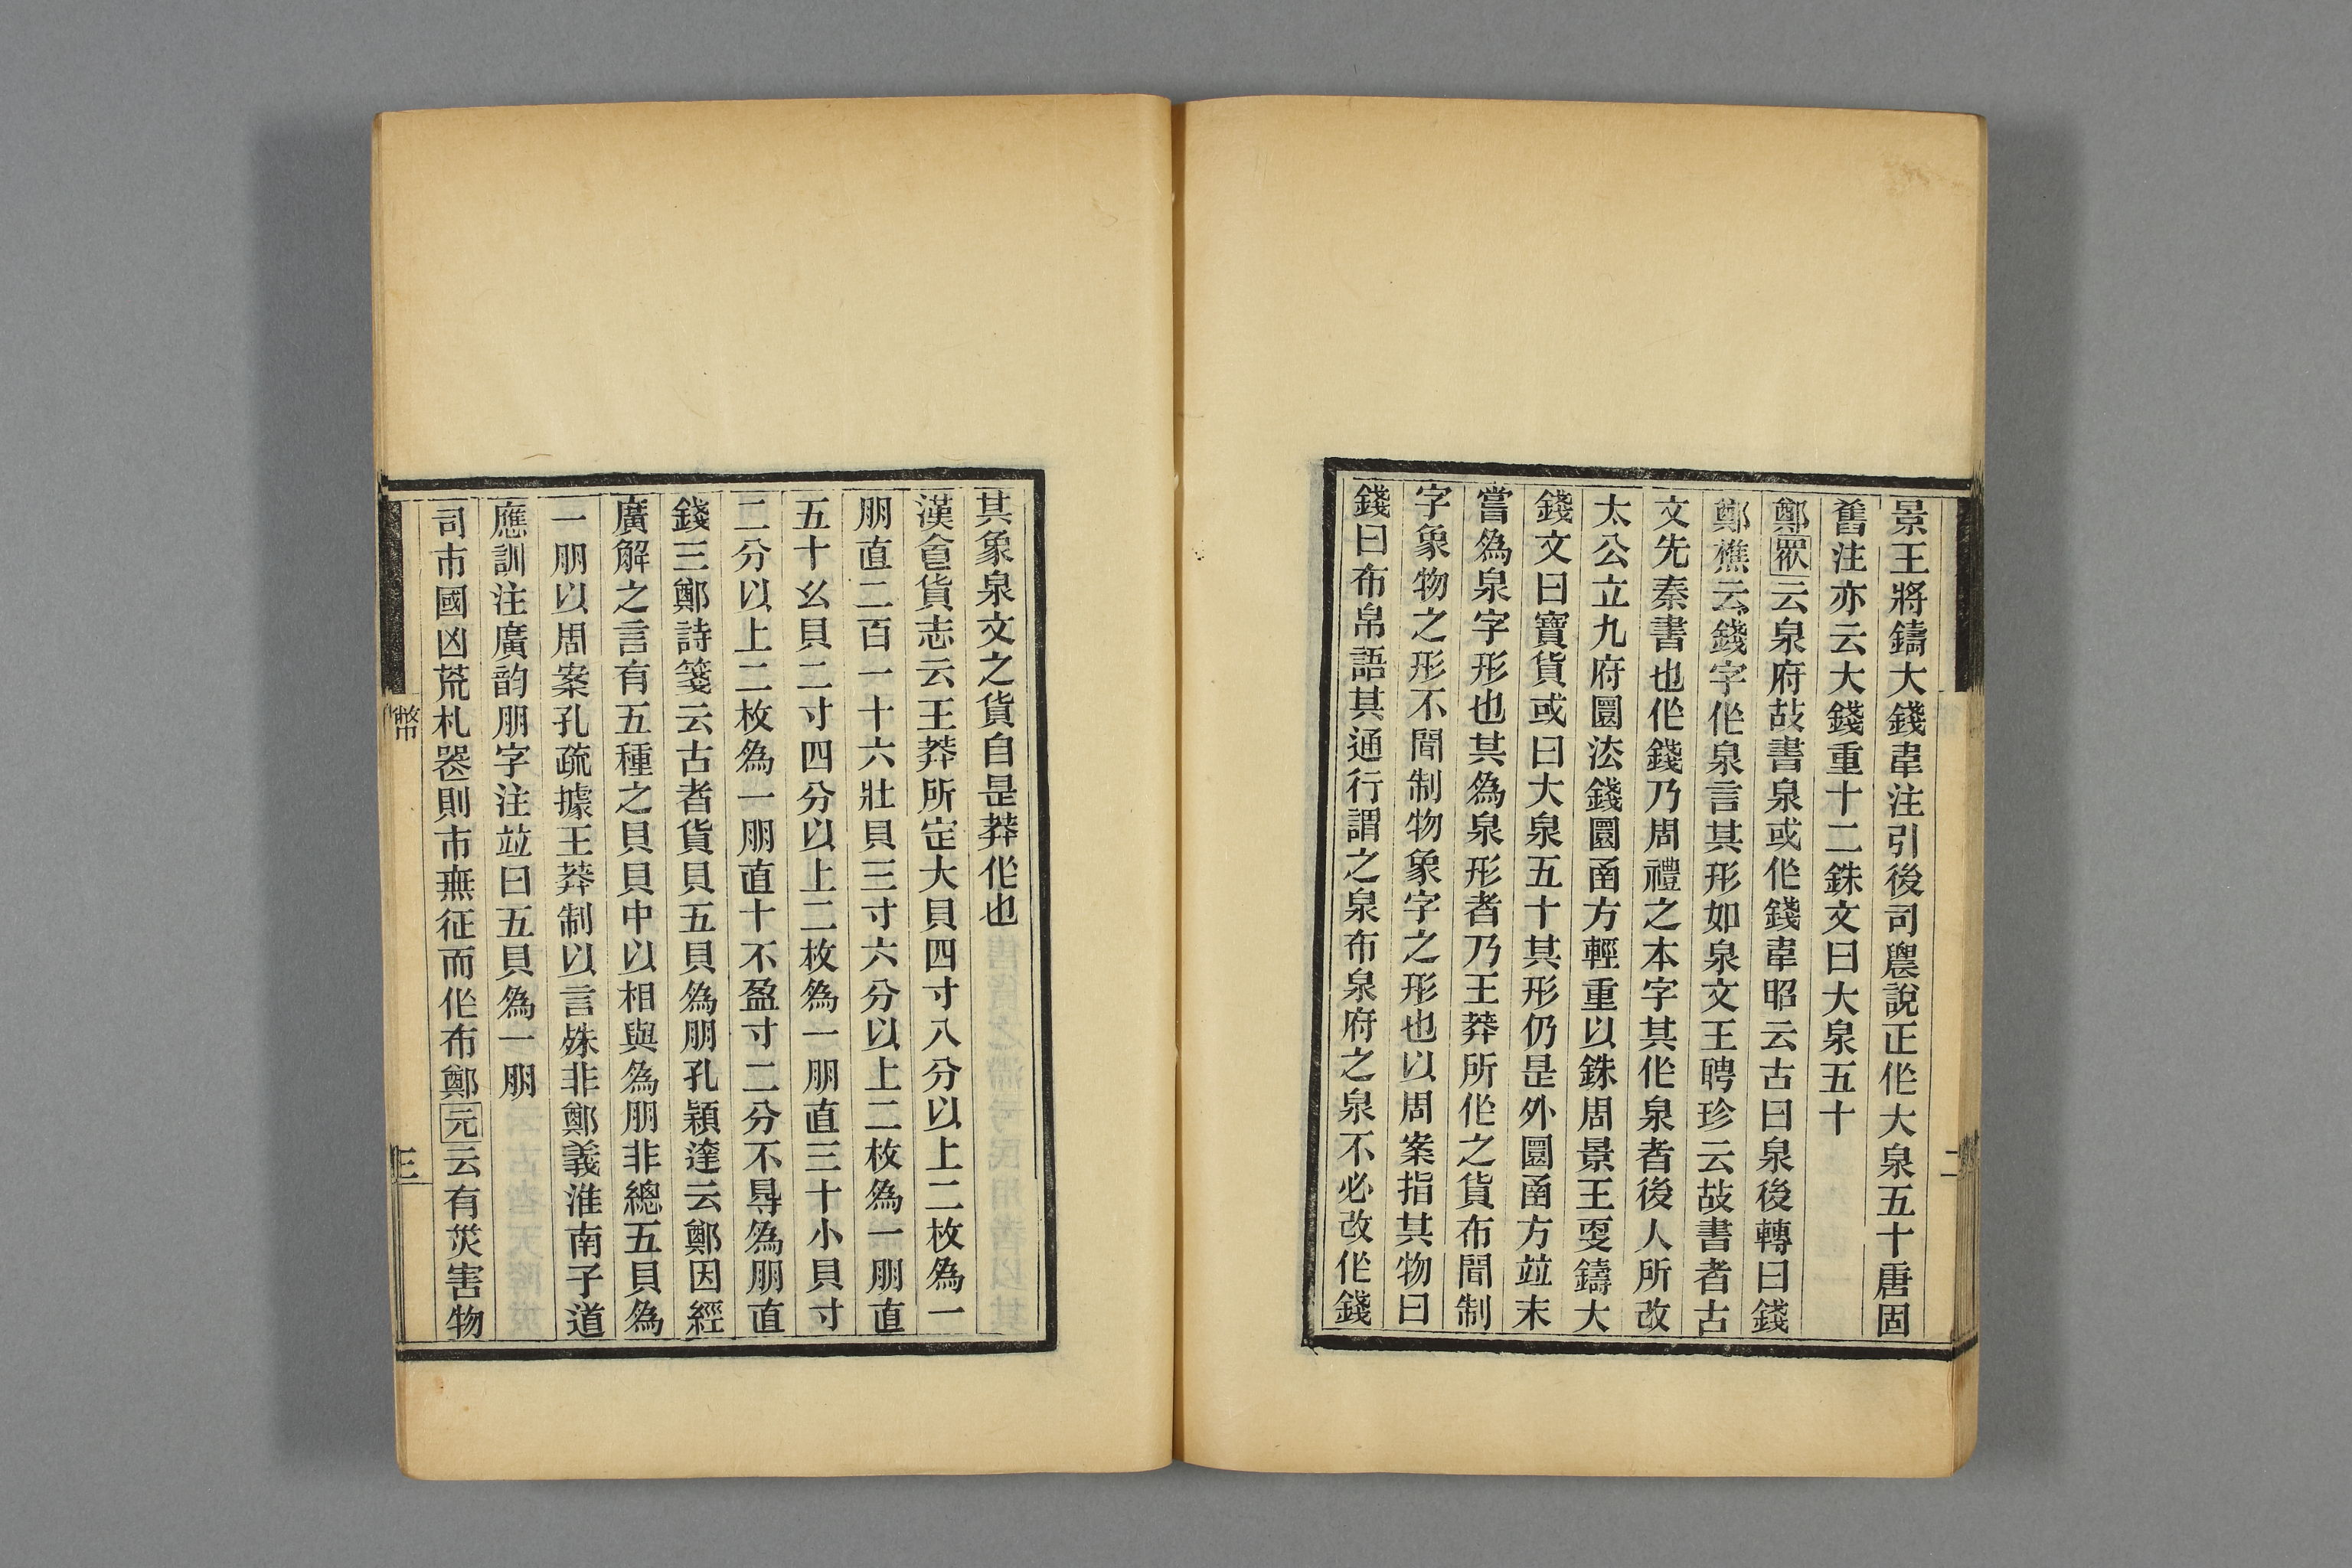 景王將鑄大錢韋注引後司農說正作大泉五十唐固
舊注亦云大錢重十二銖文曰大泉五十
鄭衆云泉府故書泉或作錢韋昭云古曰泉後轉曰錢
鄭樵云錢字作泉言其形如泉文王聘珍云故書者古
文先秦書也作錢乃周禮之本字其作泉者後人所改
太公立九府圜法錢圜𠭖方輕重以銖周景王更鑄大
錢文曰寶貨或曰大泉五十其形仍是外圜𠭖方竝未
嘗為泉字形也其為泉形者乃王莽所作之貨布間制
字象物之形不聞制物象字之形也以周案指其物曰
錢曰布帛語其通行謂之泉布泉府之泉不必改作錢
二
其象泉文之貨自是莽作也
漢食貨志云王莽所定大貝四寸八分以上二枚為一
朋直二百一十六壯貝三寸六分以上二枚為一朋直
五十幺貝二寸四分以上二枚為一朋直三十小貝寸
二分以上二枚為一朋直十不盈寸二分不得為朋直
錢三鄭詩箋云古者貨貝五貝為朋孔穎達云鄭因經
廣解之言有五種之貝貝中以相與為朋非總五貝為
一朋以周案孔疏據王莽制以言殊非鄭義淮南子道
應訓注廣韵朋字注竝曰五貝為一朋
司市國凶荒札器則市無征而作布鄭元云有烖害物
幣
三